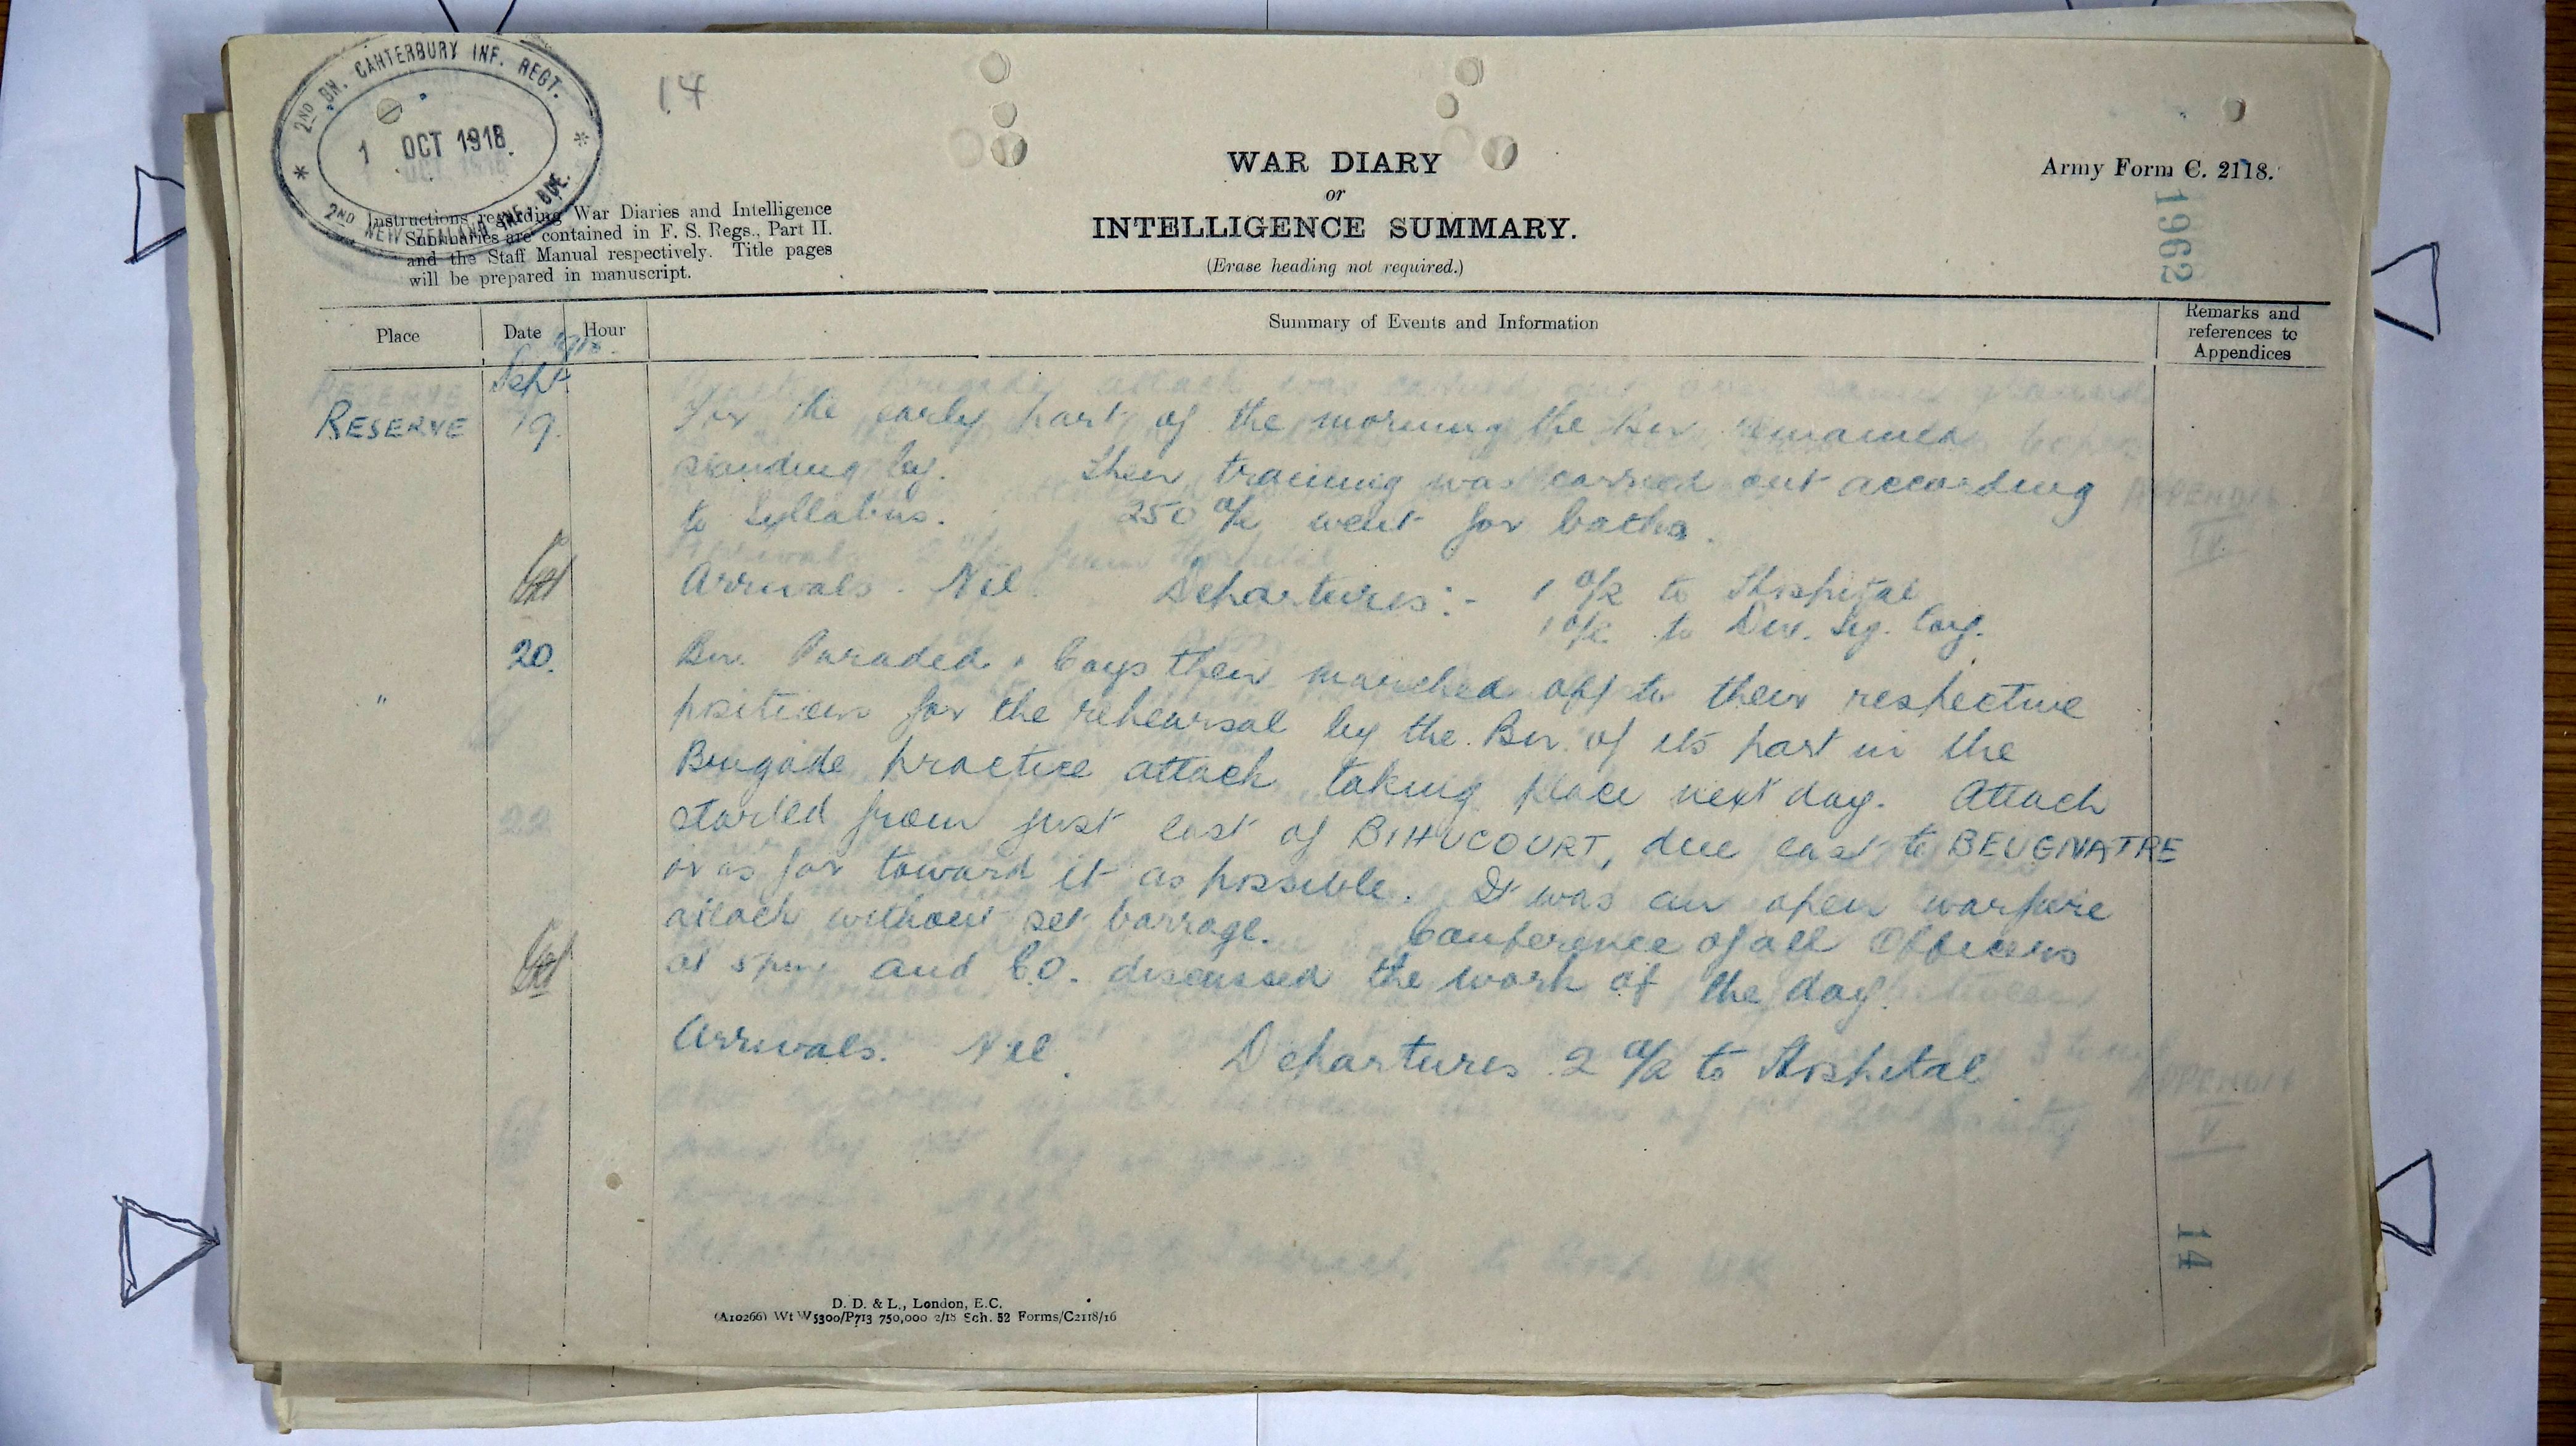 2ND BN. CANTERBURY INF. REGT.
1 OCT 1918.
2ND NEW ZEALAND INF. BDE.
14
WAR DIARY
or
INTELLIGENCE SUMMARY.
(Erase heading not required.)
Army Form C. 2118.
1962
Instructions regarding War Diaries and Intelligence
Summaries are contained in F. S. Regs., Part II.
and the Staff Manual respectively. Title pages
will be prepared in manuscript.
Place Date Hour Summary of Events and Information Remarks and references to Appendices
1918.
Sept
RESERVE 19. For the early part of the morning the Bn. remained
standing by. Then training was carried out according
to Syllabus. 250 O/R went for baths.
Arrivals. Nil. Departures:- 1 O/R to Hospital
1 O/R. to Div. Sig. Coy.
" 20. Bn. Paraded & Coys then marched off to their respective
positions for the rehearsal by the Bn. of its part in the
Brigade practice attack taking place next day. Attack
started from just east of BIHUCOURT, due east to BEUGNATRE
or as far toward it as possible. It was an open warfare
attack without set barrage. Conference of all Officers
at 5 pm, and C.O. discussed the work of the day.
Arrivals. Nil. Departures 2 O/R to Hospital
14
D. D. & L., London, E.C.
(A10266) Wt W5300/P713 750,000 2/18 Sch. 52 Forms/C2118/16